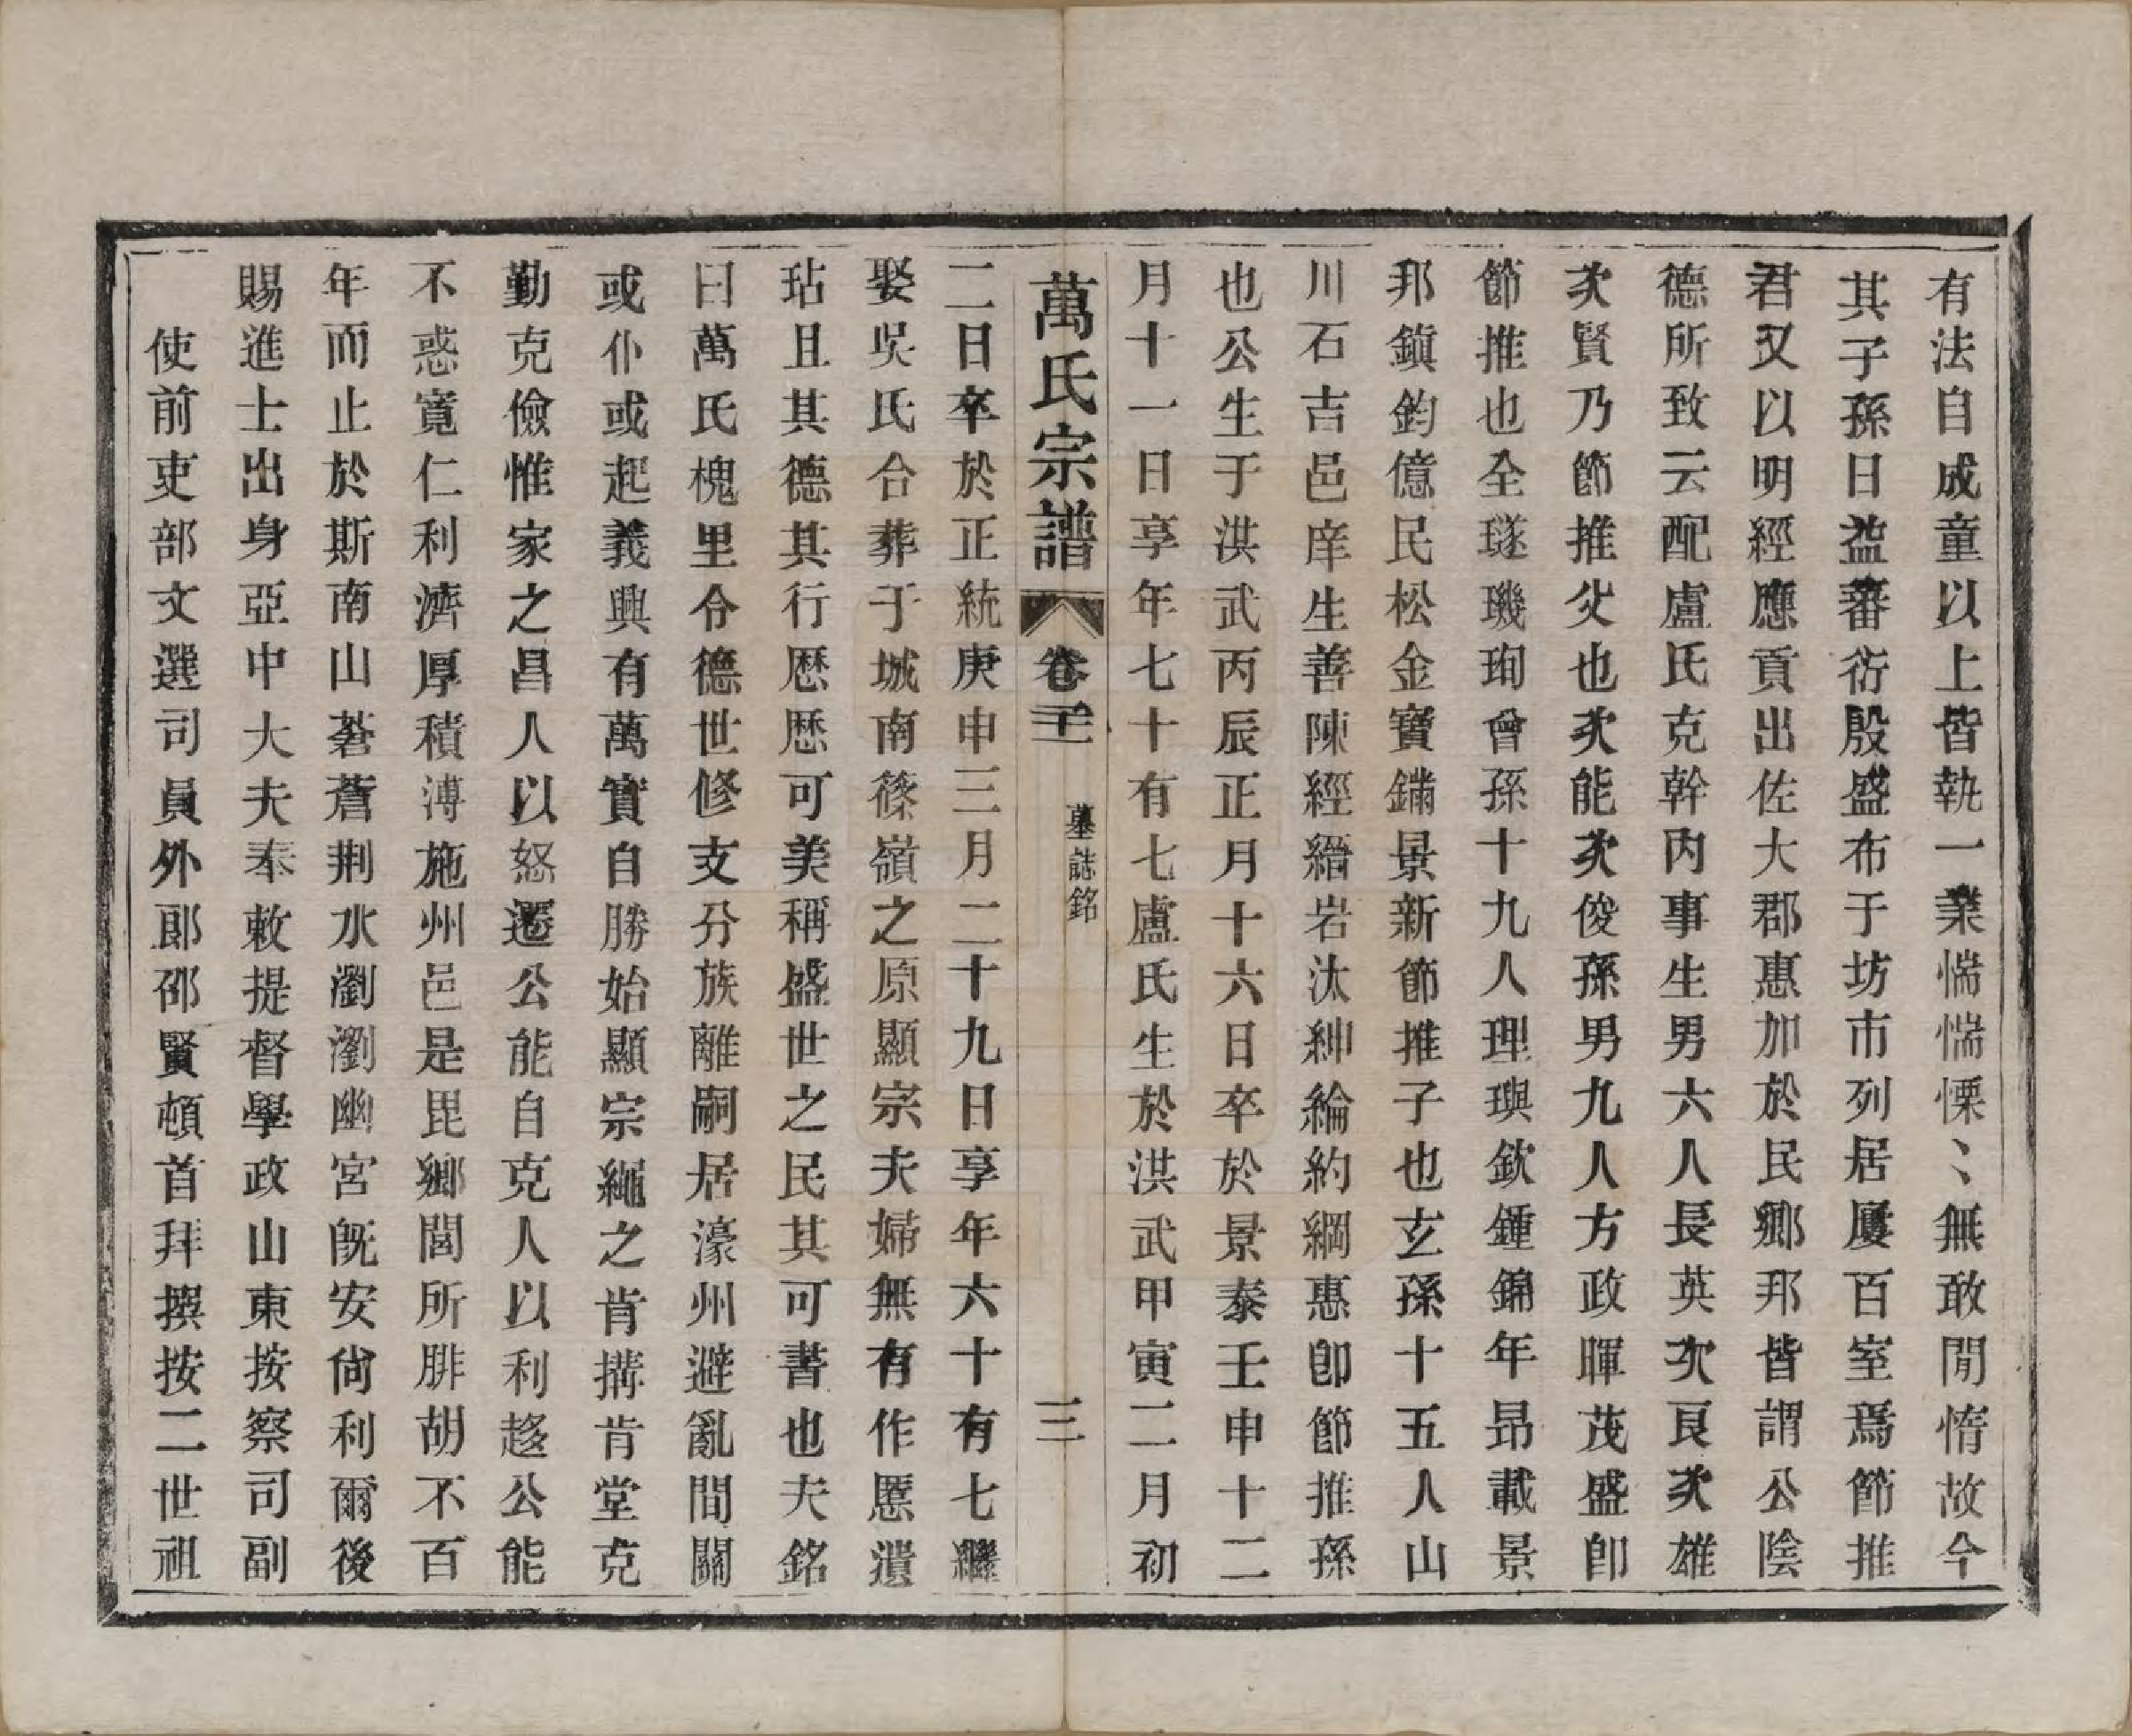 有法自成童以上皆執一業惴惴慄〻無敢閒惰故今
其子孫日益蕃衍殷盛布于坊市列居屢百室焉節推
君又以明經應貢出佐大郡惠加於民鄉邦皆謂公陰
德所致云配盧氏克幹內事生男六人長英次良次雄
次賢乃節推父也次能次俊孫男九人方政暉茂盛卽
節推也全璲璣珣曾孫十九人理璵欽鍾錦年昂載景
邦鎭鈞億民松金寶鏞景新節推子也玄孫十五人山
川石吉邑庠生善陳經縉岩汰紳綸約綱惠卽節推孫
也公生于洪武丙辰正月十六日卒於景泰壬申十二
月十一日享年七十有七盧氏生於洪武甲寅二月初
萬氏宗譜 卷二十 墓誌銘 三
二日卒於正統庚申三月二十九日享年六十有七繼
娶吳氏合葬于城南篠嶺之原顯宗夫婦無有作慝遺
玷且其德其行歷歷可美稱盛世之民其可書也夫銘
曰萬氏槐里令德世修支分族離嗣居濠州避亂間關
或仆或起義興有萬實自勝始顯宗繩之肯搆肯堂克
勤克儉惟家之昌人以怒遷公能自克人以利趍公能
不惑寬仁利濟厚積溥施州邑是毘鄉閭所腓胡不百
年而止於斯南山蒼蒼荆水瀏瀏幽宮旣安尙利爾後
賜進士出身亞中大夫奉敕提督學政山東按察司副
使前吏部文選司員外郎邵賢頓首拜撰按二世祖